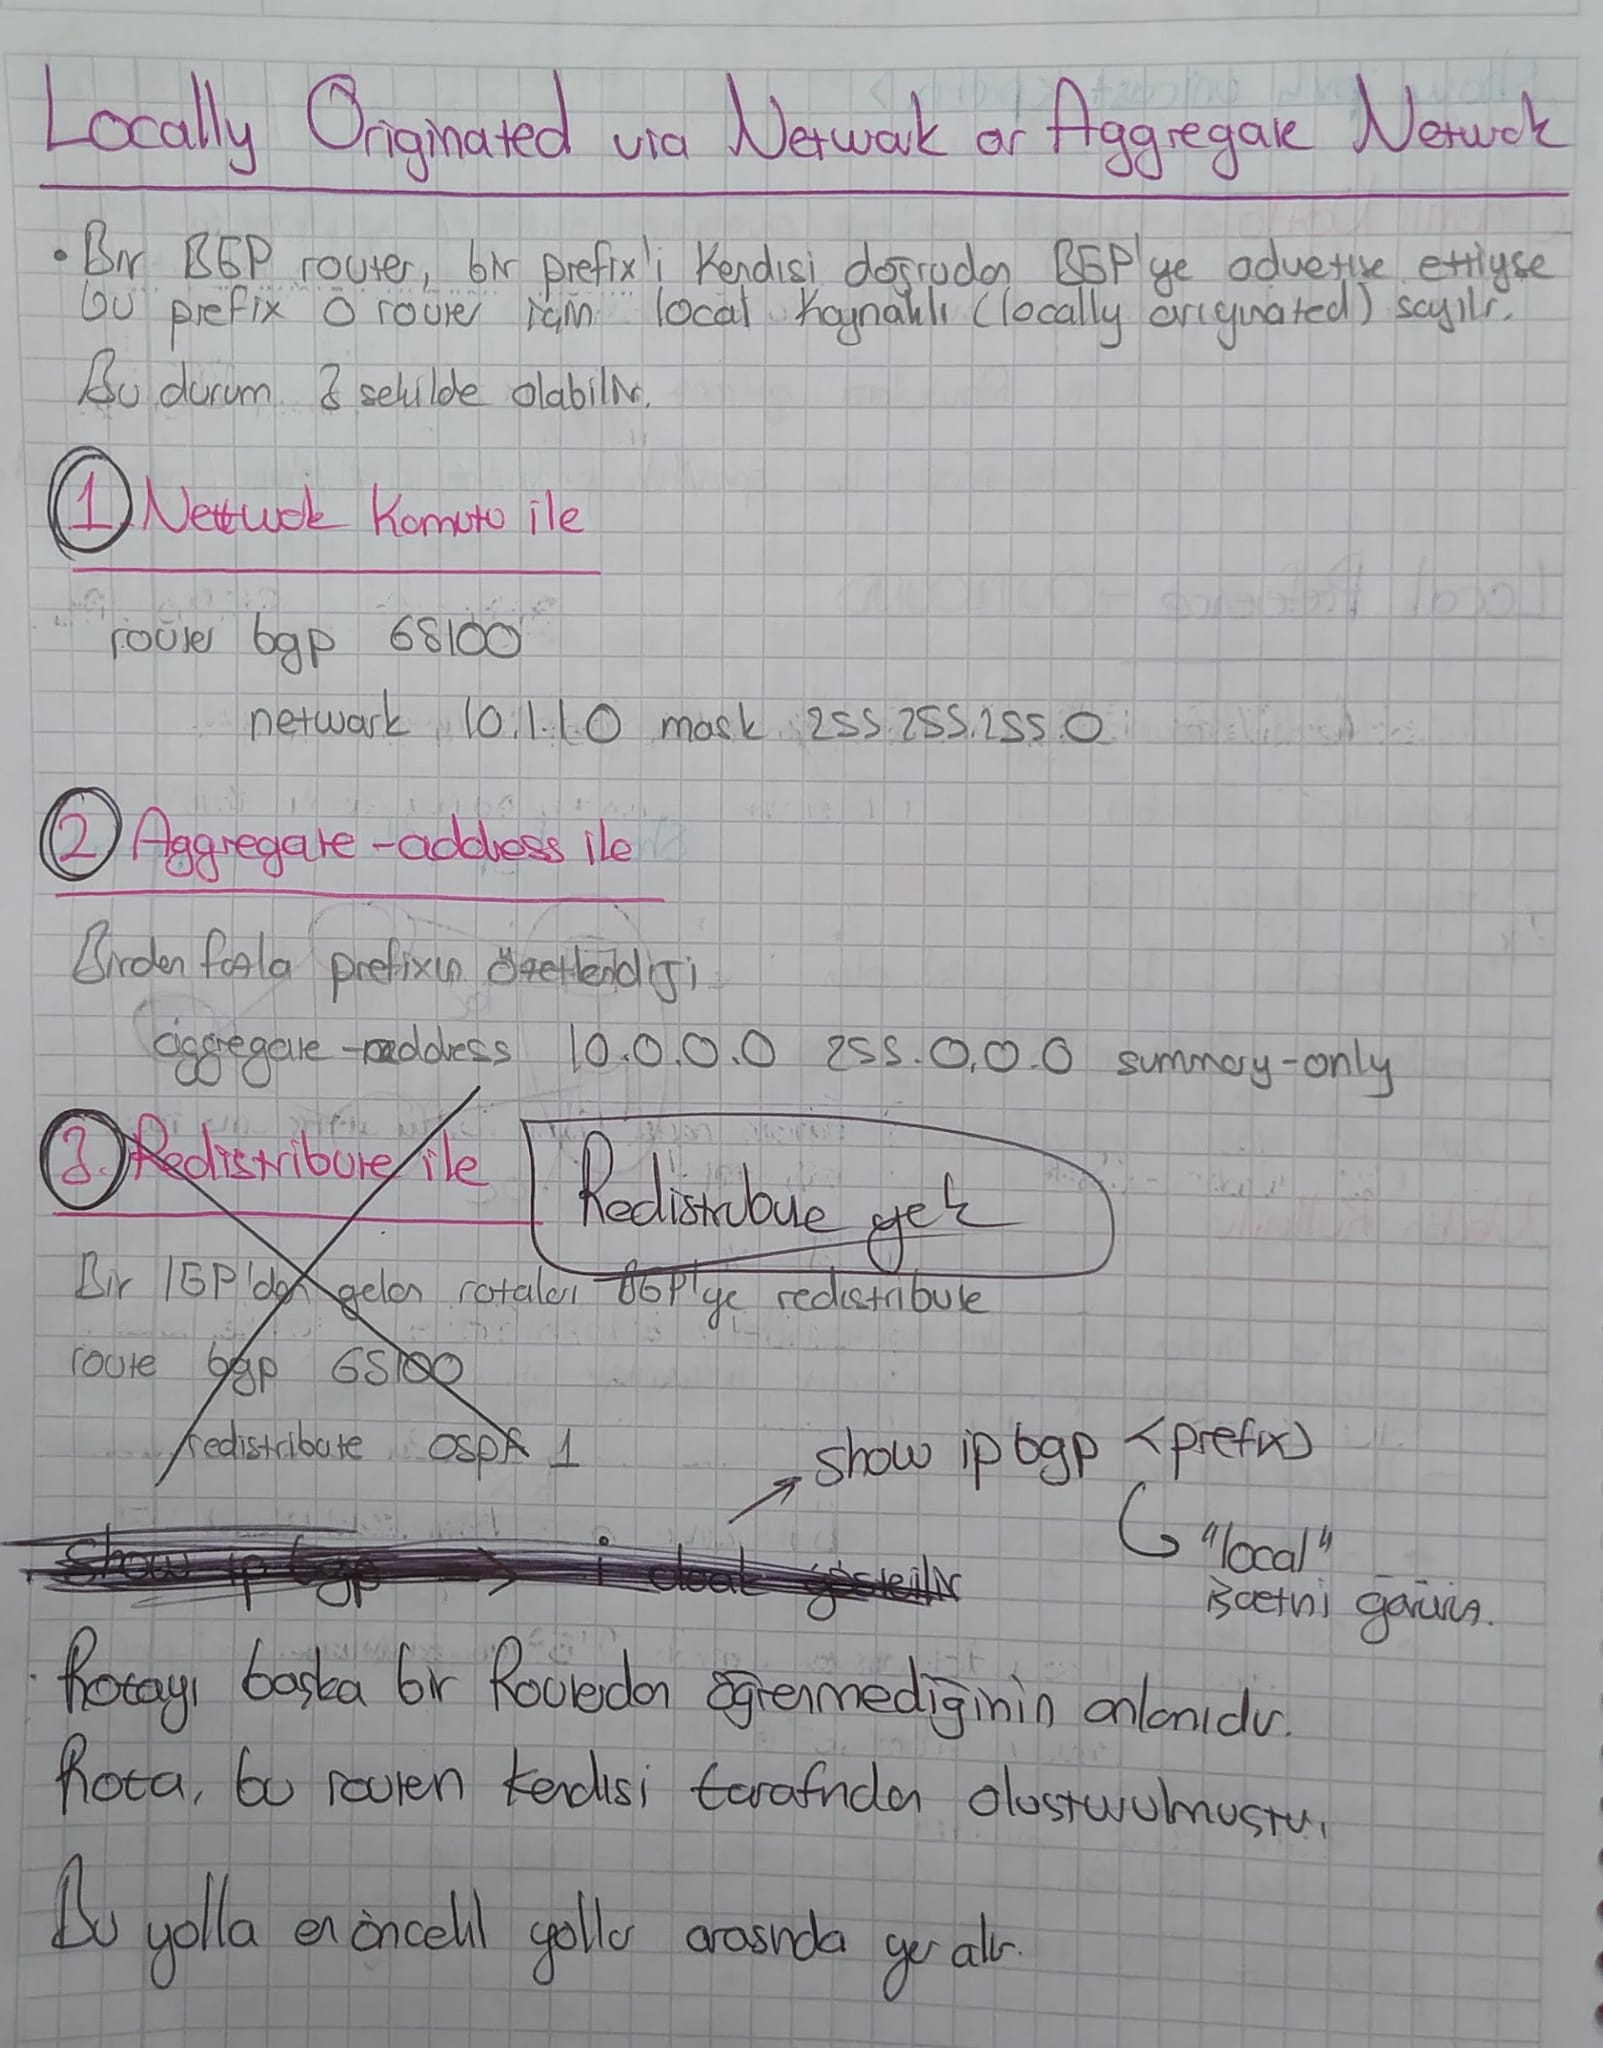 Locally Originated via Network or Aggregate Network
• Bir BGP router, bir prefix'i kendisi doğrudan BGP'ye advertise ettiyse
bu prefix o router için local kaynaklı (locally originated) sayılır.
Bu durum 3 şekilde olabilir.
1. Network Komutu ile
router bgp 65100
network 10.1.1.0 mask 255.255.255.0
2. Aggregate-address ile
Birden fazla prefixin özetlendiği
aggregate-address 10.0.0.0 255.0.0.0 summary-only
3. Redistribute ile
Redistribute yok
Bir IGP'den gelen rotaları BGP'ye redistribute
route bgp 65100
redistribute ospf 1
show ip bgp <prefix>
"local"
işaretini görürüz.
show ip bgp → i olarak gösterilir
• Rotayı başka bir Routerdan öğrenmediğinin anlamıdır.
Rota, bu routerın kendisi tarafından oluşturulmuştur.
Bu yolla en öncelikli yollar arasında yer alır.